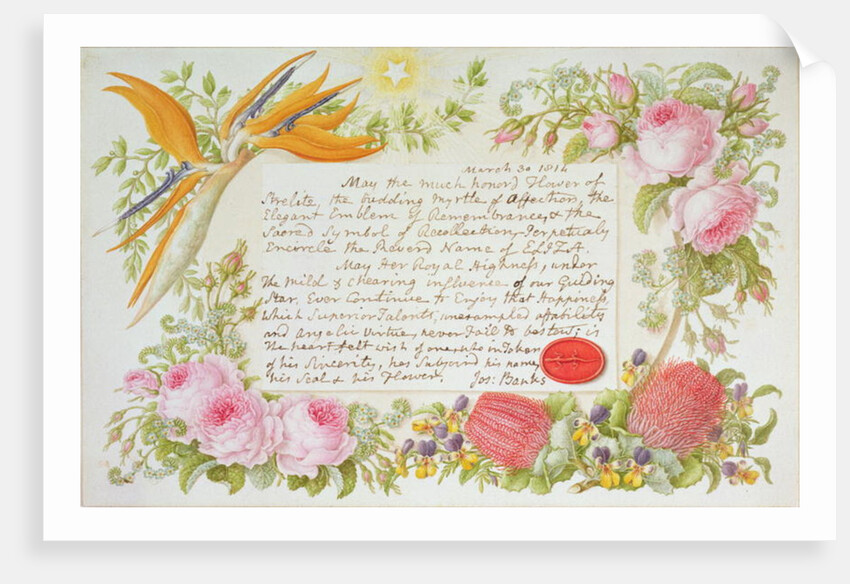 March 30 1814
May the much honord Flower of
Strelitz, the budding Myrtle of Affection, the
Elegant Emblem of Remembrance, & the
Sacred Symbol of Recollection, Perpetualy
Encircle the Reverd Name of ELIZA.
May Her Royal Highness, under
the Mild & chearing influence of our Guiding
Star, Ever Continue to Enjoy that Happiness,
which Superior Talents, unexampled affability
and Angelic Virtue, never Fail to bestow; is
the heart felt wish of one, who in Token
of his Sincerity, has Subjoind his name,
his Seal & his Flower. Jos: Banks